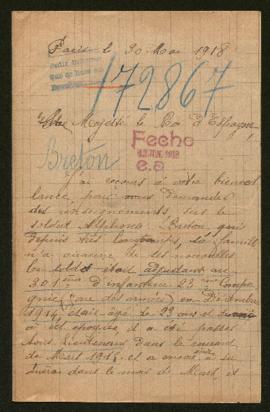 Paris le 30 Mai 1918
172867
Sa Majesté le Roi d'Espagne
Fecho
e.a
Breton
J'ai recours à votre bienveil
lance, pour vous demander
des renseignements, sur le
soldat Alphonse Breton qui
depuis très longtemps, sa famille
n'a aucune de ses nouvelles
Ce soldat était adjudant au
301e d'infanterie 23e Compa
gnie (aux armées) en Décembre
1914, était âgé de 22 ans et
à cet époque, il a été passer
sous Lieutenant dans le courant
de Mars 1918 il a encore
dans le mois de Mars et